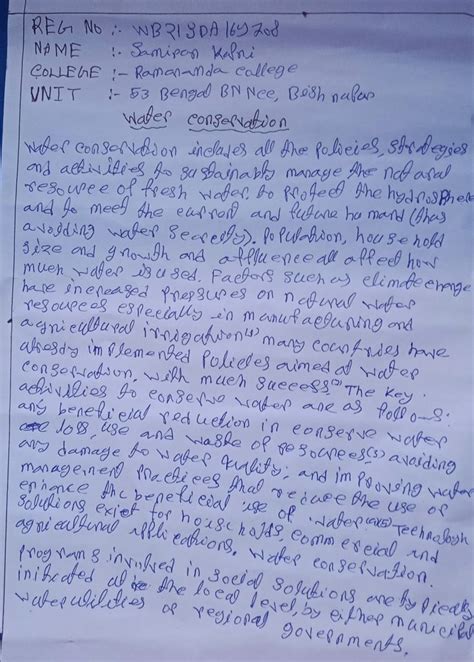 REG No :- WB21SDA169208
NAME :- Samiran Kalni
COLLEGE :- Ramananda college
UNIT :- 53 Bengal BN Ncc, Bishnapar
water conservation
water conservation incluses all the policies, strategies
and activities to sustainably manage the natural
resource of fresh water, to protect the hydrosphere
and to meet the current and future humand (thas
avoiding water scarcity). Population, household
size and growth and affluence all affect how
much water is used. Factors such as climate change
have increased pressures on natural water
resources especially in manufacturing and
agricultural irrigation(1) many countries have
already implemented Policies aimed at water
conservation, with much success(2) The key
activities to conserve water are as follows:
any beneficial reduction in conserve water
loss, use and waste of resources,(3) avoiding
any damage to water quality; and improving water
management practices that reduce the use or
enhance the beneficial use of water Technology
solutions exist for households, commercial and
agricultural applications. water conservation.
programs involved in social solutions are typically
initiated at the local level, by either municipal
water utilities or regional governments.